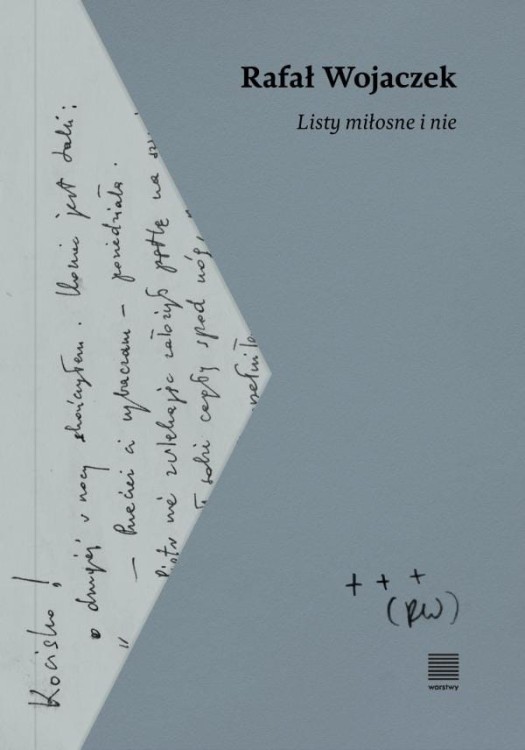 Rafał Wojaczek
Listy miłosne i nie
Kocisko!
o drugiej w nocy skończyłem. Koniec jest taki:
„ — Przecież ci wybaczam – powiedziała.
Piotr nie zwlekając założył pętlę na
sobie cegły spod nóg,
+ + +
(RW)
warstwy